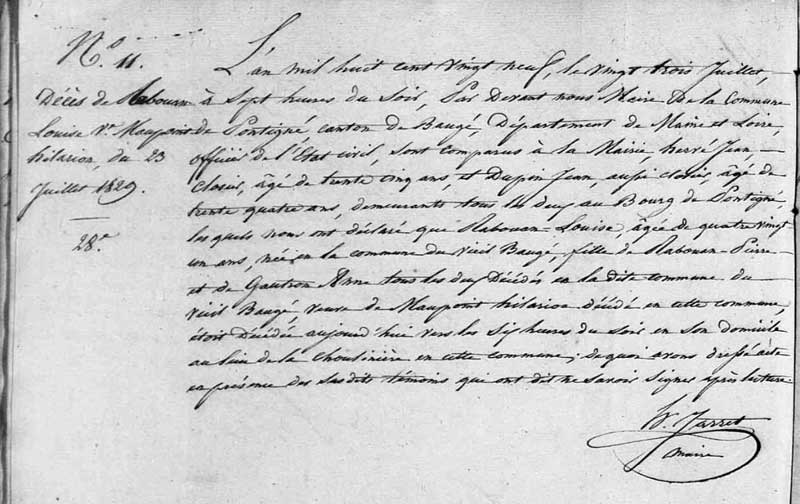 N.o 11.
Décès de Rabouan
Louise Ve. Maupoint
hilarion, du 23
Juillet 1829.
28e.
L'an mil huit cent vingt neuf, le vingt trois Juillet,
à Sept heures du Soir, Par Devant nous Maire De la Commune
de Pontigné, canton de Baugé, Département de Maine et Loire,
officier de l'Etat civil, sont comparus à la Mairie, hervé Jean,
closier, âgé de trente cinq ans, et Dupon Jean, aussi closier, âgé de
trente quatre ans, demeurants tous les deux au Bourg de Pontigné,
lesquels nous ont déclaré que Rabouan Louise, âgée de quatre vingt
un ans, née en la commune du vieil Baugé, fille de Rabouan Pierre
et de Gautron Anne tous les deux Décédés en la dite commune du
vieil Baugé, veuve de Maupoint hilarion décédé en cette commune,
étoit Décédée aujourd'hui vers les Six heures du soir en Son domicile
au lieu de la en cette commune; de quoi avons dressé acte
en présence des susdits témoins qui ont dit ne savoir signer après lecture.
Jarret
maire